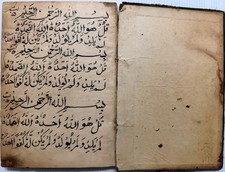 بِسْمِ اللهِ الرَّحْمٰنِ الرَّحِيْمِ
قُلْ هُوَ اللهُ اَحَدٌ اَللهُ الصَّمَدُ
لَمْ يَلِدْ وَلَمْ يُوْلَدْ وَلَمْ يَكُنْ لَهُ كُفُوًا اَحَدٌ
بِسْمِ اللهِ الرَّحْمٰنِ الرَّحِيْمِ
قُلْ هُوَ اللهُ اَحَدٌ اَللهُ الصَّمَدُ
لَمْ يَلِدْ وَلَمْ يُوْلَدْ وَلَمْ يَكُنْ لَهُ كُفُوًا اَحَدٌ
بِسْمِ اللهِ الرَّحْمٰنِ الرَّحِيْمِ
قُلْ هُوَ اللهُ اَحَدٌ اَللهُ الصَّمَدُ
لَمْ يَلِدْ وَلَمْ يُوْلَدْ وَلَمْ يَكُنْ لَهُ كُفُوًا اَحَدٌ